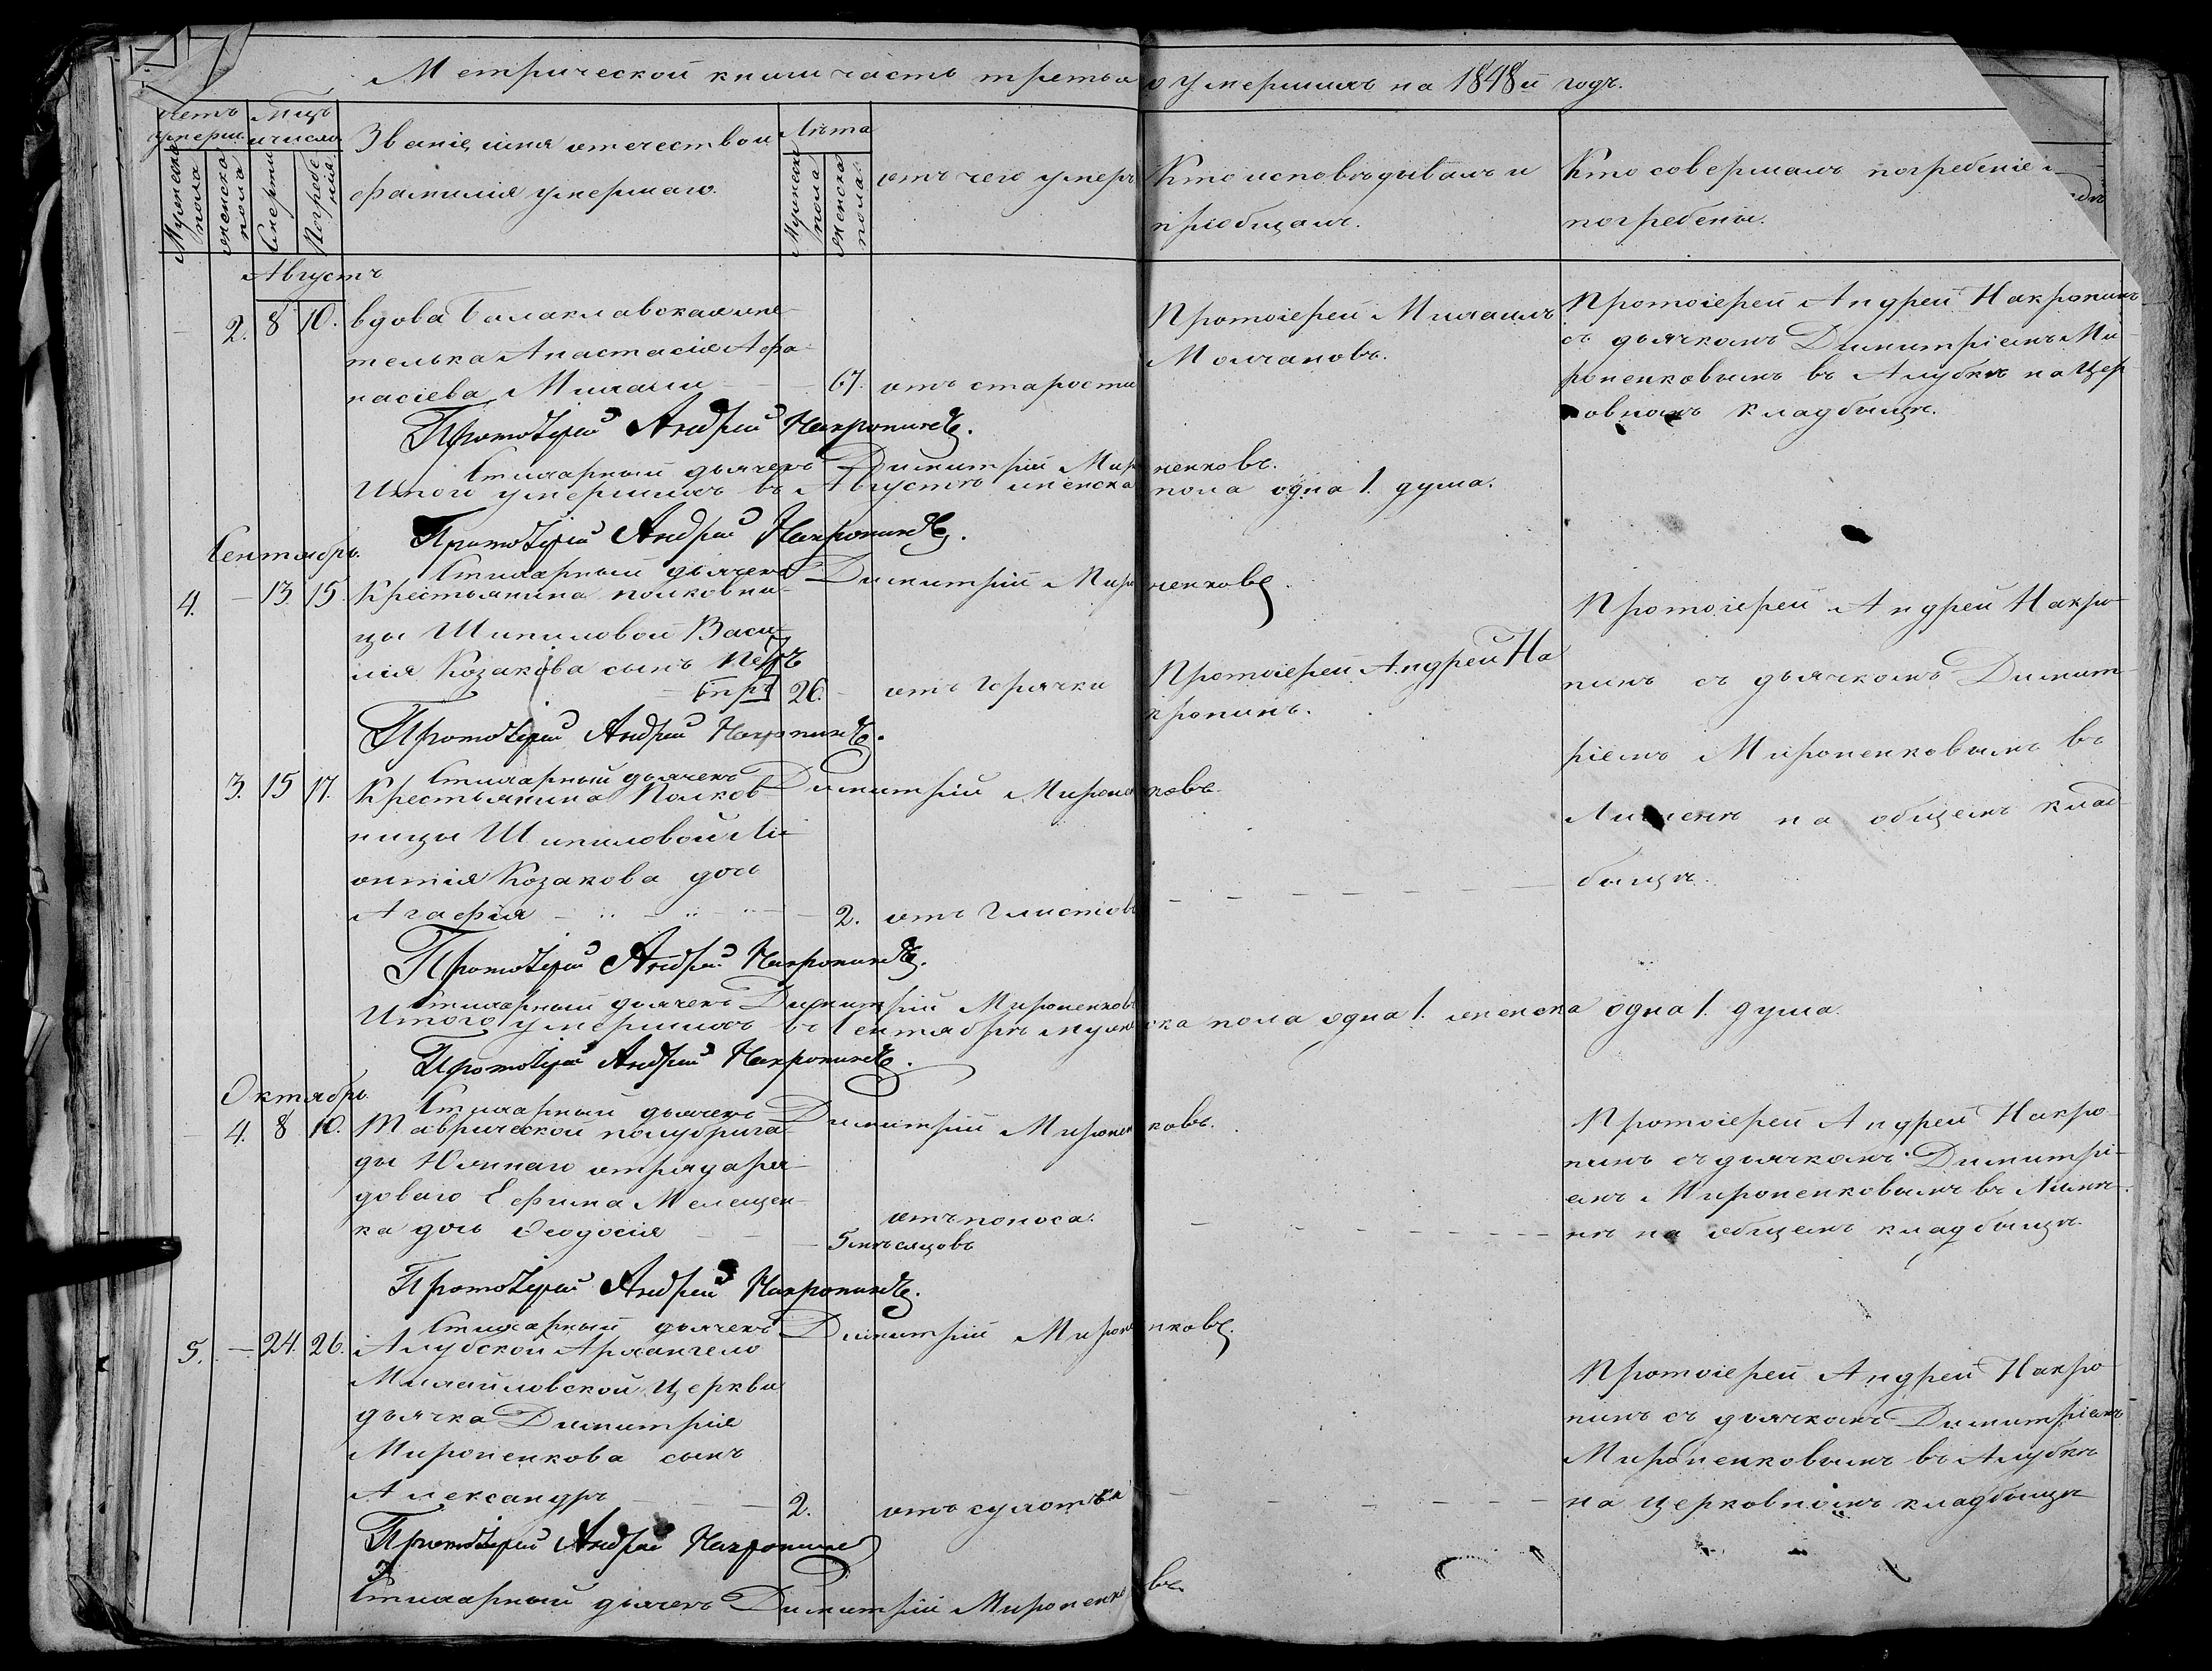 Метрической книги часть третья о умершихъ на 1848й годъ.
Счетъ умерш.
Мужеска пола
женска пола
Мцъ и число
Смерти
Погребенія
Званіе, имя отечество и
фамилія умершаго.
Лѣта
Мужеска пола
женска пола.
отъ чего умеръ
Кто исповѣдывалъ и
пріобщалъ.
Кто совершалъ погребеніе и
погребены.
Августъ
— 2. 8 10. вдова Балаклавская жи-
телька Анастасія Афа-
насіева — 67. отъ старости
Протоіерей Михаилъ
Молчановъ.
Протоіерей Андрей Накропинъ
съ дьячкомъ Димитріемъ Ми-
роненковымъ въ Алубкѣ на Цер
ковномъ кладбищѣ.
Протоіерей Андрей Накропинъ.
Стихарный дьячекъ Димитрій Мироненковъ.
Итого умершихъ въ Августѣ женска пола одна 1. душа.
Протоіерей Андрей Накропинъ.
Сентябрь.
Стихарный дьячекъ Димитрій Мироненковъ.
4. — 13. 15. Крестьянина полковни-
цы Шипиловой Васи-
лія Козакова сынъ Петръ
26. — отъ Горячки
Протоіерей Андрей На
кропинъ.
Протоіерей Андрей Накро-
пинъ съ дьячкомъ Димит-
ріемъ Мироненковымъ въ
на общемъ клад-
бищѣ.
Протоіерей Андрей Накропинъ.
Стихарный дьячекъ Димитрій Мироненковъ.
3. 15 17. Крестьянина Полков
ницы Шипиловой Ле-
онтія Козакова дочь
Агафія — 2. отъ Глистовъ — — — — —
Протоіерей Андрей Накропинъ.
Стихарный дьячекъ Димитрій Мироненковъ
Итого умершихъ въ Сентябрѣ мужеска пола одна 1. женска одна 1. душа.
Протоіерей Андрей Накропинъ.
Октябрь.
Стихарный дьячекъ Димитрій Мироненковъ.
4. 8 10. Таврической полубрига-
ды Южнаго отряда ря-
доваго Ефима Мелещен-
ка дочь Феодосія — 5 мѣсяцовъ отъ поноса. — — — — —
Протоіерей Андрей Накро-
пинъ съ дьячкомъ Димитрі-
емъ Мироненковымъ въ
на общемъ кладбищѣ.
Протоіерей Андрей Накропинъ.
Стихарный дьячекъ Димитрій Мироненковъ.
5. — 24. 26. Алубской Архангело
Михайловской Церкви
дьячка Димитрія
Мироненкова сынъ
Александръ — 2. отъ сухотки — — — — —
Протоіерей Андрей Накро-
пинъ съ дьячкомъ Димитріемъ
Мироненковымъ въ Алубкѣ
на церковномъ кладбищѣ
Протоіерей Андрей Накропинъ
Стихарный дьячекъ Димитрій Мироненковъ.